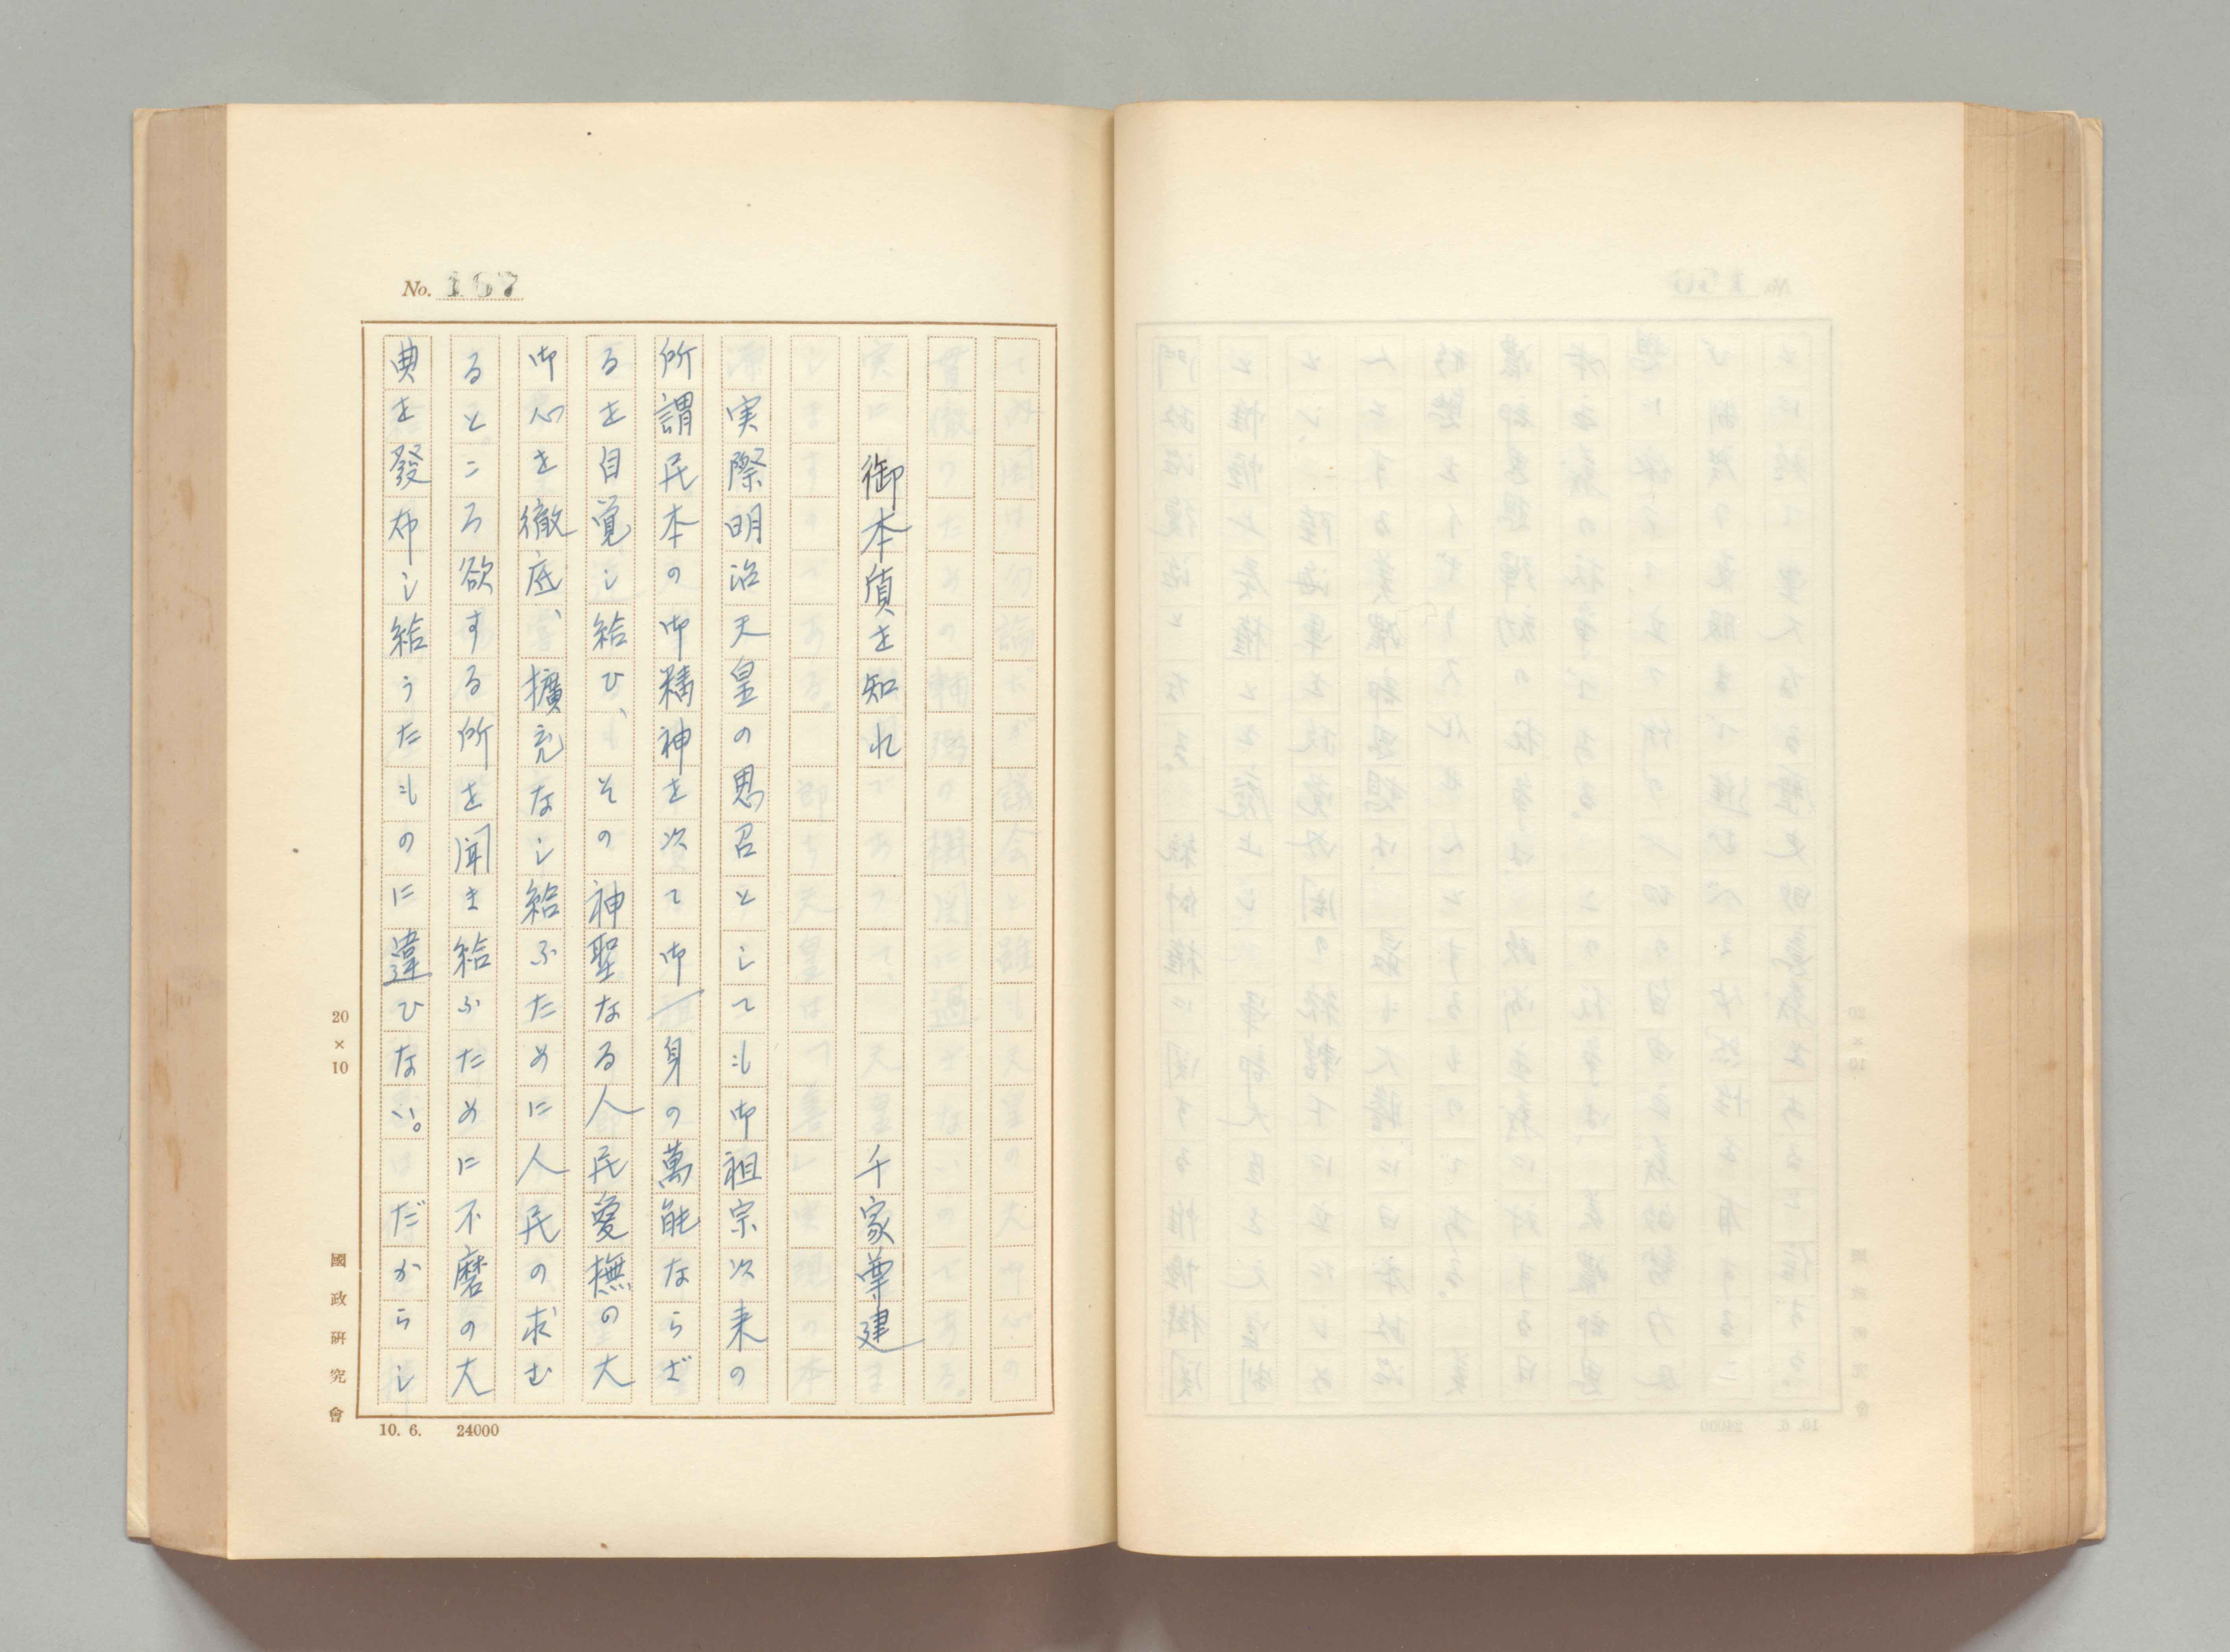 No. 157
御本質を知れ 千家尊建
実際明治天皇の思召としても御祖宗次来の
所謂民本の御精神を次て御一身の萬能ならざ
るを自覚し給ひ、その神聖なる人民愛撫の大
御心を徹底、擴充なし給ふために人民の求む
るところ欲する所を聞き給ふために不磨の大
典を發布し給うたものに違ひない。だからし
20×10
國政研究會
10. 6. 24000